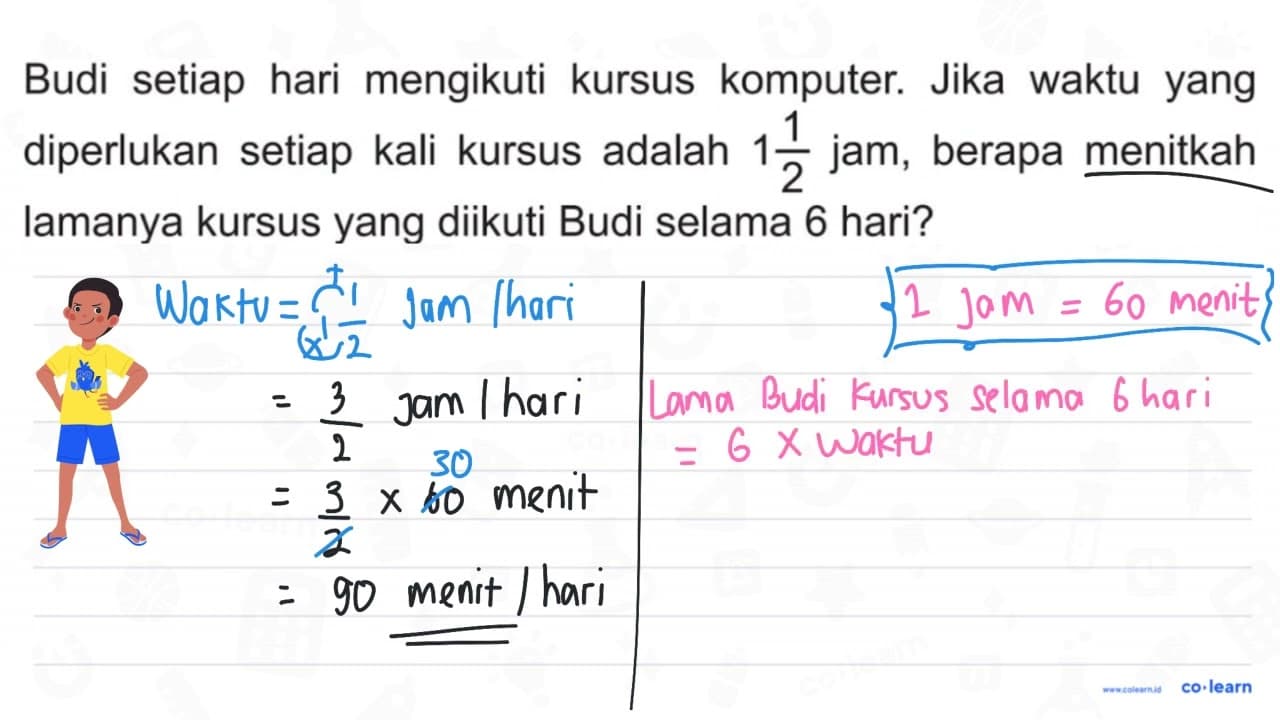 Budi setiap hari mengikuti kursus komputer. Jika waktu yang
diperlukan setiap kali kursus adalah 1 1/2 jam, berapa menitkah
lamanya kursus yang diikuti Budi selama 6 hari?
Waktu = 1 1/2 Jam / hari
+
x
= 3/2 Jam / hari
= 3/2 x 60 menit
30
= 90 menit / hari
1 Jam = 60 menit
Lama Budi Kursus selama 6 hari
= 6 x waktu
www.colearn.id co·learn